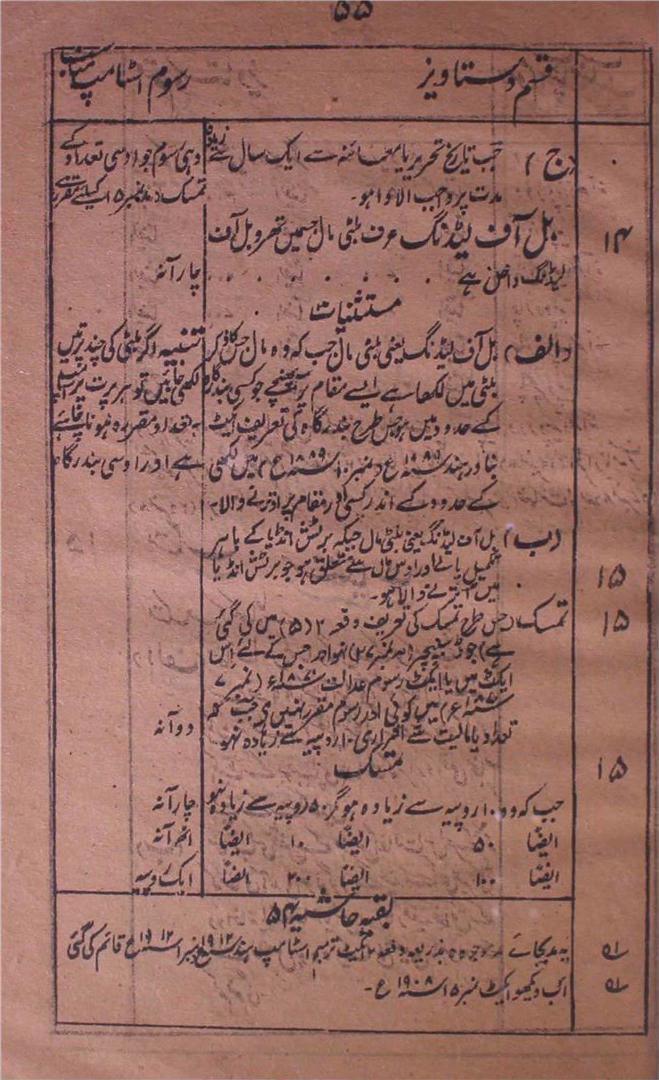 ۵۵
قسم دستاویز
رسوم اسٹامپ مناسب
(ج) جب تاریخ تحریر یا معائنہ سے ایک سال سے زیادہ
مدت پر واجب الادا ہو۔
وہی رسوم جو اوسی تعداد کے
تمسک (مد نمبر ۱۵ کیلئے مقرر ہے
۱۴
بل آف لیڈنگ عرف بلٹی مال جسمیں تھرو بل آف
لیڈنگ داخل ہے . . . . . . . چار آنہ
مستثنیات
(الف) بل آف لیڈنگ یعنی بلٹی مال جب کہ وہ مال جس کا ذکر
بلٹی میں لکھا ہے ایسے مقام پر پہنچے جو کسی بندرگاہ
کے حدود میں ہو جس طرح بندرگاہ کی تعریف ایکٹ
بنادر ہند سنہ ۱۸۸۹ع (نمبر ۱۰ سنہ ۱۸۸۹ع) میں لکھی ہے اور اوسی بندرگاہ
کے حدود کے اندر کسی اور مقام پر اوترنے والا ہو
تنبیہ اگر بلٹی کی چند پرتیں
لکھی جائیں تو ہر پرت پر اسٹامپ
بہ تعداد مقررہ ہونا چاہئے
(ب) بل آف لیڈنگ یعنی بلٹی مال جبکہ برٹش انڈیا کے باہر
تکمیل پائے اور اوس مال سے متعلق ہو جو برٹش انڈیا
میں اوترنے والا ہو۔
۱۵
۱۵
تمسک (جس طرح تمسک کی تعریف دفعہ ۲ (۵) میں کی گئی
ہے) جو ڈبینچر (مد نمبر ۲۷) نہو اور جس کے لئے اس
ایکٹ میں یا ایکٹ رسوم عدالت سنہ ۱۸۷۰ع (نمبر ۷
سنہ ۱۸۷۰ع) میں کوئی اور رسوم مقرر نہیں ہے جب کہ
تعداد یا مالیت سے اقراری ۱۰ روپیہ سے زیادہ نہو
دو آنہ
تمسک
۱۵
جب کہ وہ ۱۰ روپیہ سے زیادہ ہو مگر ۵۰ روپیہ سے زیادہ نہو چار آنہ
ایضًا ۵۰ ایضًا ۱۰۰ ایضًا اٹھ آنہ
ایضًا ۱۰۰ ایضًا ۲۰۰ ایضًا ایک روپیہ
بقیہ حاشیہ ۵۴
یہ مد بجائے مد موجودہ بذریعہ دفعہ ۲ ایکٹ ترمیم اسٹامپ ہند سنہ ۱۹۱۲ع (نمبر ۱ سنہ ۱۹۱۲ع) قائم کی گئی
اب دیکھو ایکٹ نمبر ۱۵ سنہ ۱۹۰۸ع۔